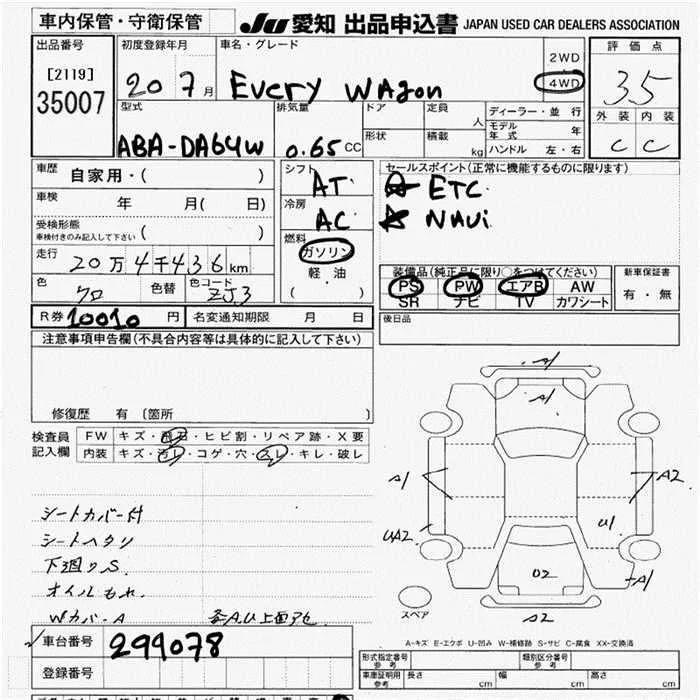 車内保管・守衛保管
JU 愛知 出品申込書 JAPAN USED CAR DEALERS ASSOCIATION
出品番号 初度登録年月 車名・グレード 評価点
[2119] 2WD
35007 20 7 月 Every WAgon 4WD 3.5
型式 排気量 ドア 定員 人 ディーラー・並行 外装 内装
モデル年式 年
ABA-DA64W 0.65 CC 形状 積載 kg ハンドル 左・右 C C
車歴 自家用・( ) シフト AT セールスポイント(正常に機能するものに限ります)
ETC
車検 年 月( 日) 冷房 AC NAvi
受検形態
車検付きのみ記入して下さい ( ) 燃料
ガソリン
走行 20万4千436km 軽・油
装備品(純正品に限り○をつけてください) 新車保証書
色 クロ 色替 色コード ZJ3 ( )
PS PW エアB AW 有・無
SR ナビ TV カワシート
R券 10010 円 名変通知期限 月 日 後日品
注意事項申告欄(不具合内容等は具体的に記入して下さい)
修復歴 有 〔箇所 〕
検査員 FW キズ・飛石・ヒビ割・リペア跡・X要
記入欄 内装 キズ・汚レ・コゲ・穴・スレ・キレ・破レ
A1
A1
A1 A2
シートカバー付
シートヘタリ U1
UA2
下廻りS
オイルもれ A1
U2
Wカバ-A
スペア A2
A-キズ E-エクボ U-凹み W-補修跡 S-サビ C-腐食 XX-交換済
車台番号 299078
登録番号
形式指定番号 参考 類別区分番号 参考
車庫証明用 参考 長さ cm 幅 cm 高さ cm